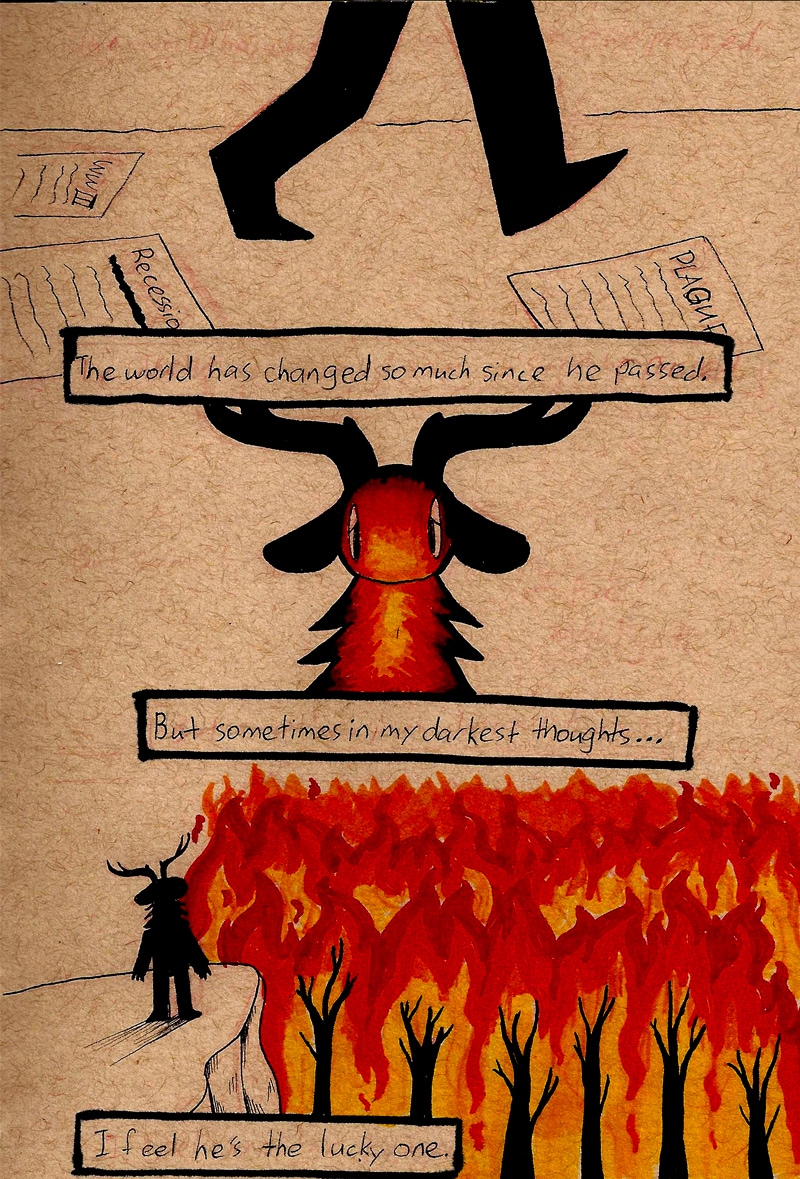 WW III
Recessio
PLAGUE
The world has changed so much since he passed.
But sometimes in my darkest thoughts...
I feel he's the lucky one.